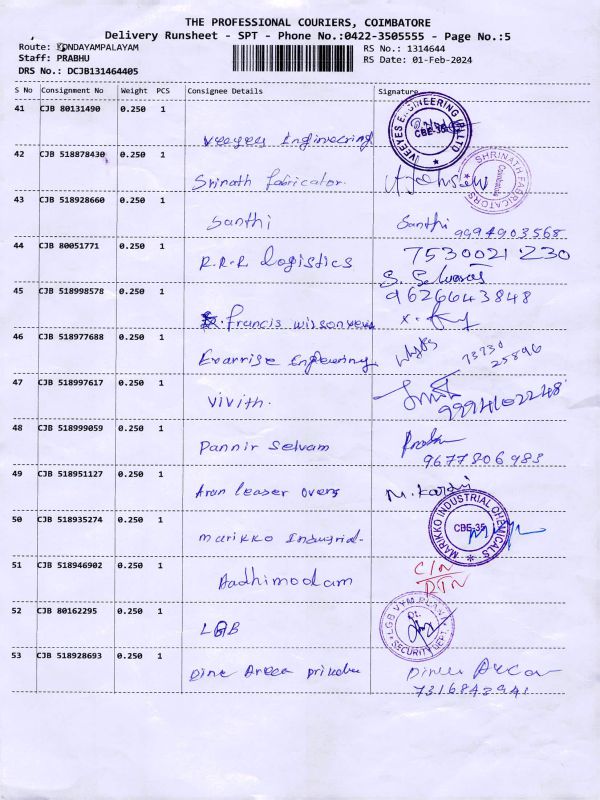 THE PROFESSIONAL COURIERS, COIMBATORE
Delivery Runsheet - SPT - Phone No.:0422-3505555 - Page No.:5
Route: KONDAYAMPALAYAM
RS No.: 1314644
Staff: PRABHU
RS Date: 01-Feb-2024
DRS No.: DCJB131464405
S No Consignment No Weight PCS Consignee Details Signature
41 CJB 80131490 0.250 1
Veeyes Engineering
VEEYES ENGINEERING (P) LTD
CBE-35
42 CJB 518878430 0.250 1
Srinath fabricator.
SHRINATH FABRICATORS
Coimbatore
43 CJB 518928660 0.250 1
Santhi Santhi 9994903568
44 CJB 80051771 0.250 1
R.R.R Logistics 7530021 230
S. Selvaraj
45 CJB 518998578 0.250 1
9626643848
Francis
46 CJB 518977688 0.250 1
73730
25896
47 CJB 518997617 0.250 1
Vivith.
48 CJB 518999059 0.250 1
Pannir Selvam
9677806983
49 CJB 518951127 0.250 1
Arun leaser overs M. Karthi
50 CJB 518935274 0.250 1
marikko Industrial.
MARIKKO INDUSTRIAL CHEMICALS
CBE-35
51 CJB 518946902 0.250 1
Aadhimodam
C/N
RTN
52 CJB 80162295 0.250 1
LGB
LGB VYM PLANT
SECURITY DEPT.
53 CJB 518928693 0.250 1
7316842941